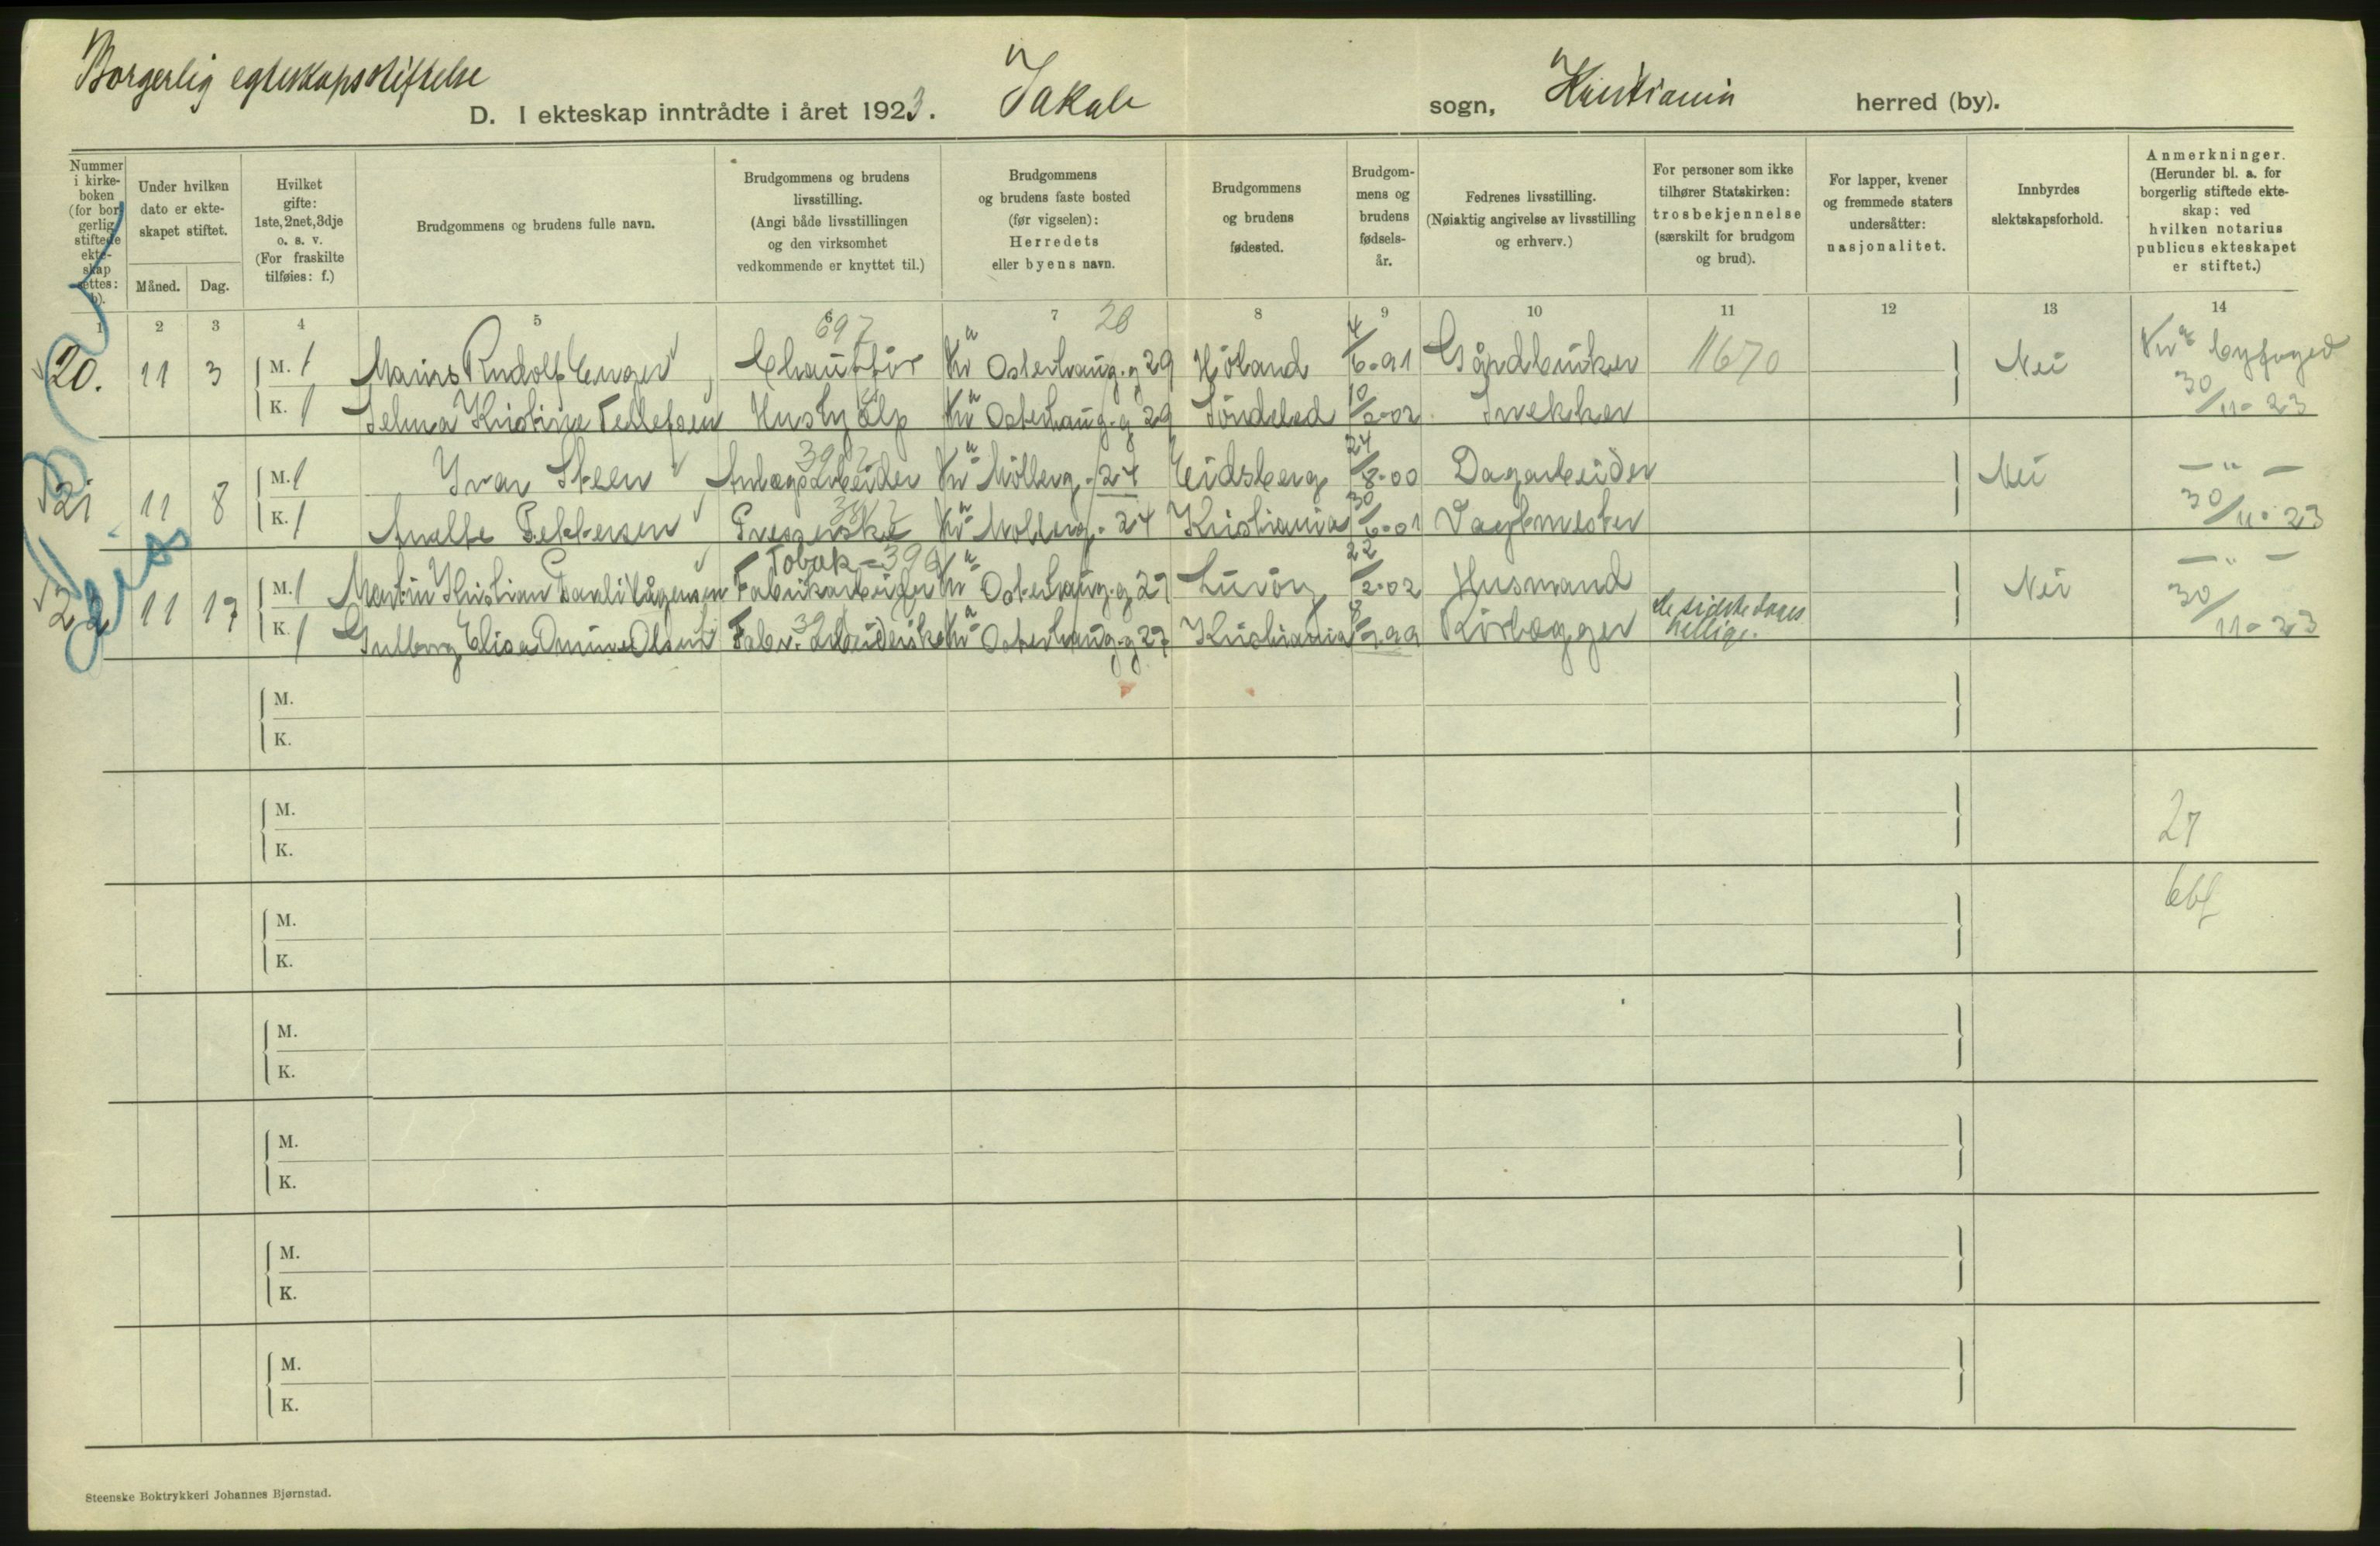 Borgerlig egteskapsstiftelse
D. I ekteskap inntrådte i året 1923. Jakob sogn, Kristiania herred (by).
Nummer i kirke-boken (for bor-gerlig stiftede ekte-skap settes: b).
Under hvilken dato er ekte-skapet stiftet.
Måned. Dag.
Hvilket gifte: 1ste, 2net, 3dje o. s. v. (For fraskilte tilføies: f.)
Brudgommens og brudens fulle navn.
Brudgommens og brudens livsstilling. (Angi både livsstillingen og den virksomhet vedkommende er knyttet til.)
Brudgommens og brudens faste bosted (før vigselen): Herredets eller byens navn.
Brudgommens og brudens fødested.
Brudgom-mens og brudens fødsels-år.
Fedrenes livsstilling. (Nøiaktig angivelse av livsstilling og erhverv.)
For personer som ikke tilhører Statskirken: trosbekjennelse (særskilt for brudgom og brud).
For lapper, kvener og fremmede staters undersåtter: nasjonalitet.
Innbyrdes slektskapsforhold.
Anmerkninger. (Herunder bl. a. for borgerlig stiftede ekte-skap: ved hvilken notarius publicus ekteskapet er stiftet.)
1 2 3 4 5 6 7 8 9 10 11 12 13 14
697 28
20. 11 3 M. 1 Marius Rudolf Enger Chauffør Kra Osterhaug. g 29 Höland 4/6-91 Gårdbruker 11670 Nei Kra byfoged
K. 1 Selma Kristine Tellefsen Hushjelp Kra Osterhaug. g 29 Söndeled 10/2-02 Snekker 30/11-23
21 11 8 M. 1 Ivar Steen Anlægsarbeider Kra Mölleng. 24 Eidsberg 24/8-00 Dagarbeider Nei — " —
K. 1 Anette Pettersen Presserske Kra Mölleng. 24 Kristiania 30/6-01 Vagtmester 30/11-23
Tobak - 396
22 11 17 M. 1 Martin Kristian Fabrikarbeider Kra Osterhaug. g 27 Luröy 22/2-02 Husmand Nei — " —
K. 1 Gulborg Elise Olsen Fabr. arbeiderske Kra Osterhaug. g 27 Kristiania 99 Rörlægger de sidste dages hellige. 30/11-23
M.
K.
M.
27
K.
M.
K.
M.
K.
M.
K.
M.
K.
M.
K.
Steenske Boktrykkeri Johannes Bjørnstad.